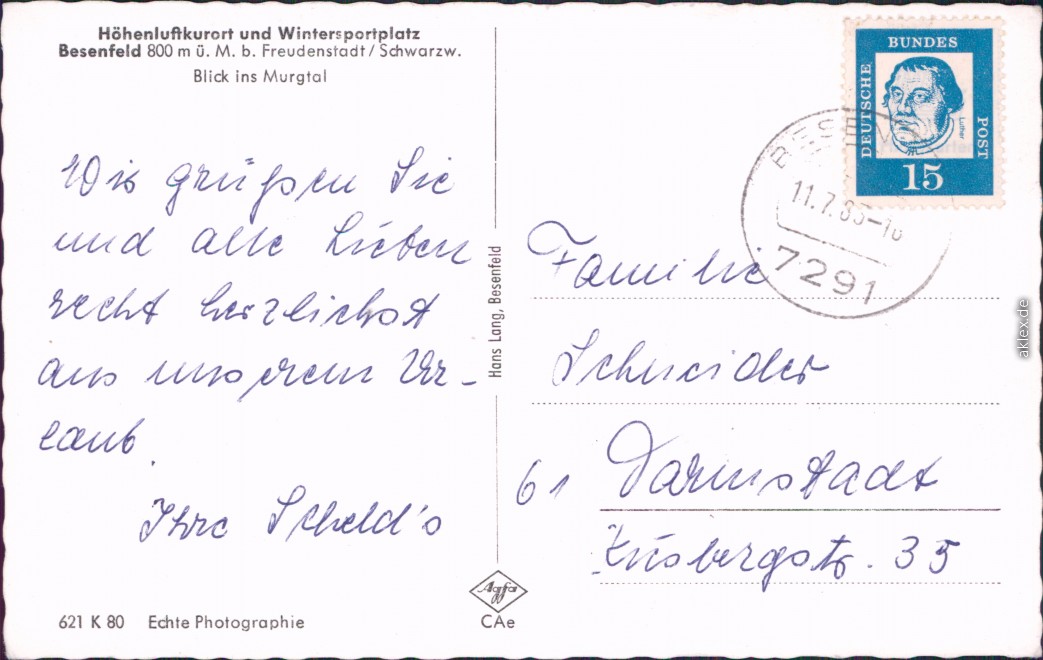 Höhenluftkurort und Wintersportplatz
Besenfeld 800 m ü. M. b. Freudenstadt / Schwarzw.
Blick ins Murgtal
Wir grüßen Sie
und alle Lieben
recht herzlichst
aus unserem Ur-
laub.
Ihre Scheld's
621 K 80 Echte Photographie
Hans Lang, Besenfeld
Agfa
CAe
DEUTSCHE
BUNDES
POST
Luther
15
11.7.
7291
Familie
Schneider
61 Darmstadt
35
aklex.de